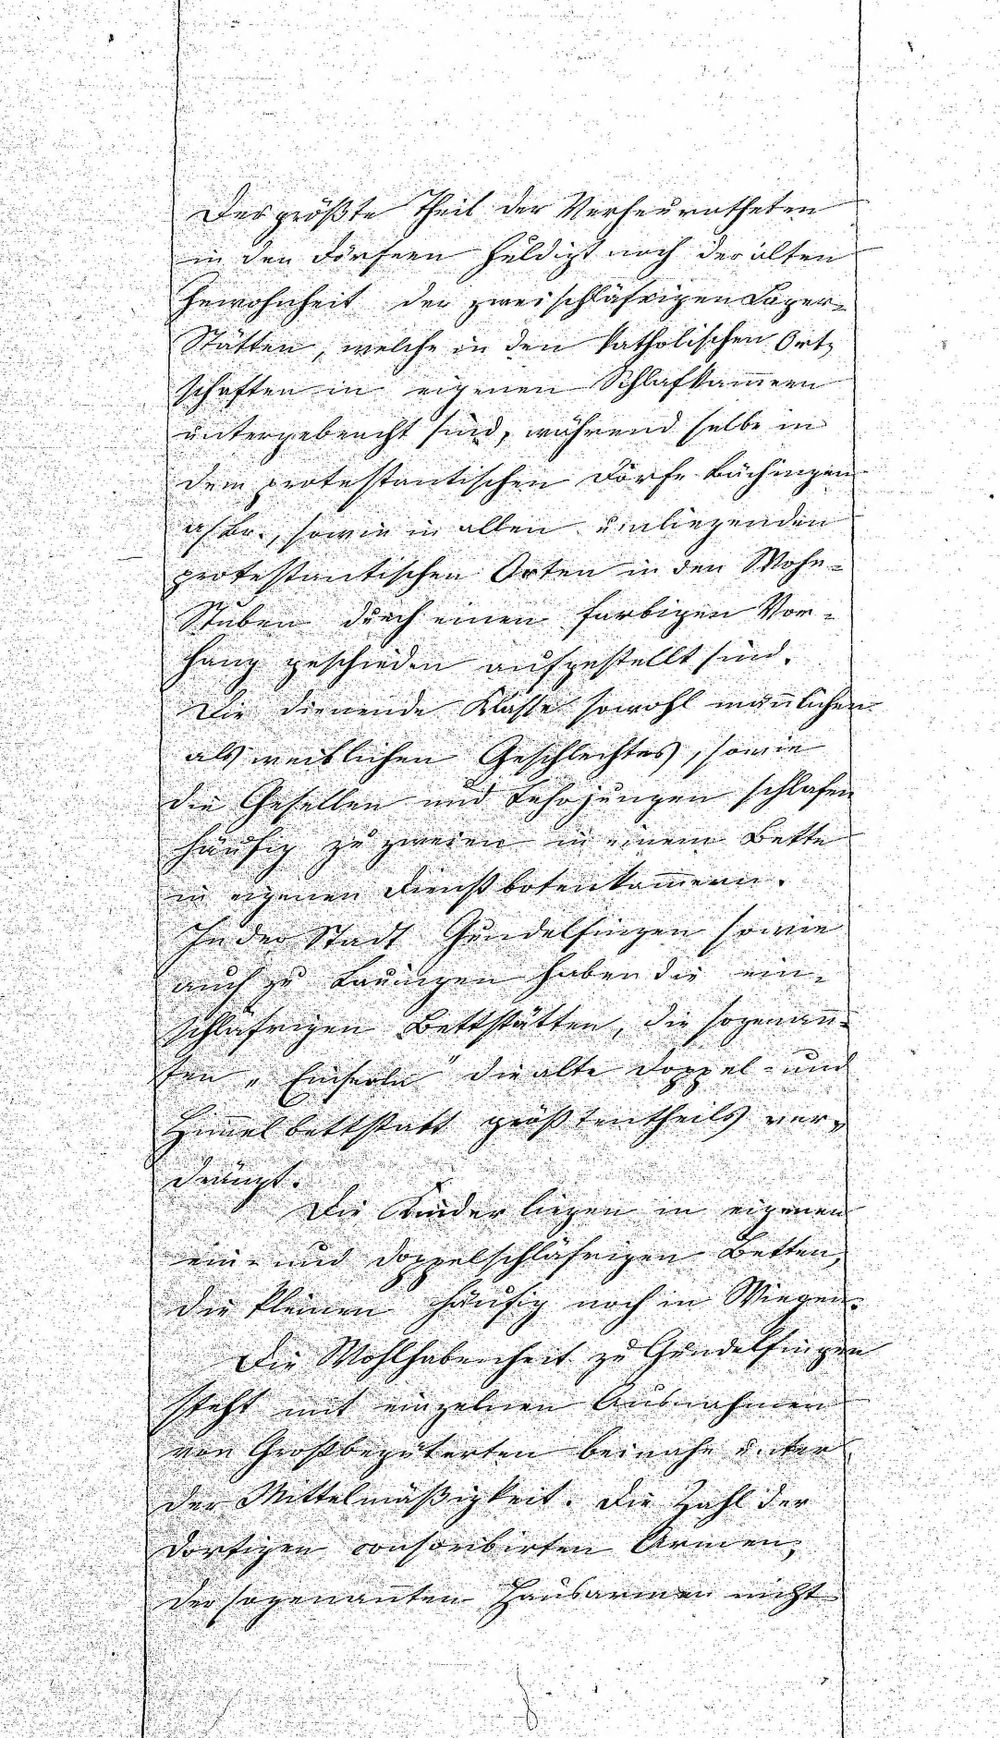 Der größte Theil der Verheuratheten
in den Dörfern huldigt noch der alten
Gewohnheit der zweischläfrigen Lager-
Stätten, welche in den katholischen Ort-
schaften in eigenen Schlafkam̅ern
untergebracht sind, während selbe in
dem protestantischen Dorfe Bächingen
a/Br., sowie in allen umliegenden
protestantischen Orten in den Wohn-
Stuben durch einen farbigen Vor-
hang geschieden aufgestellt sind.
Die dienende Klasse sowohl män̅lichen
als weiblichen Geschlechtes, sowie
die Gesellen und Lehrjungen schlafen
häufig zu zweien in einem Bette
in eigenen Dienstbotenkam̅ern.
In der Stadt Gundelfingen sowie
auch zu Lauingen haben die ein-
schläfrigen Bettstätten, die sogenan̅-
ten „ " die alte Doppel- und
Him̅elbettstatt größtentheils ver-
drängt.
Die Kinder liegen in eigenen
ein- und doppelschläfrigen Betten,
die kleinen häufig noch in Wiegen.
Die Wohlhabenheit zu Gundelfingen
steht mit einzelnen Ausnahmen
von Großbegüterten beinahe unter
der Mittelmäßigkeit. Die Zahl der
dortigen conscribirten Armen,
der sogenan̅ten Hausarmen nicht